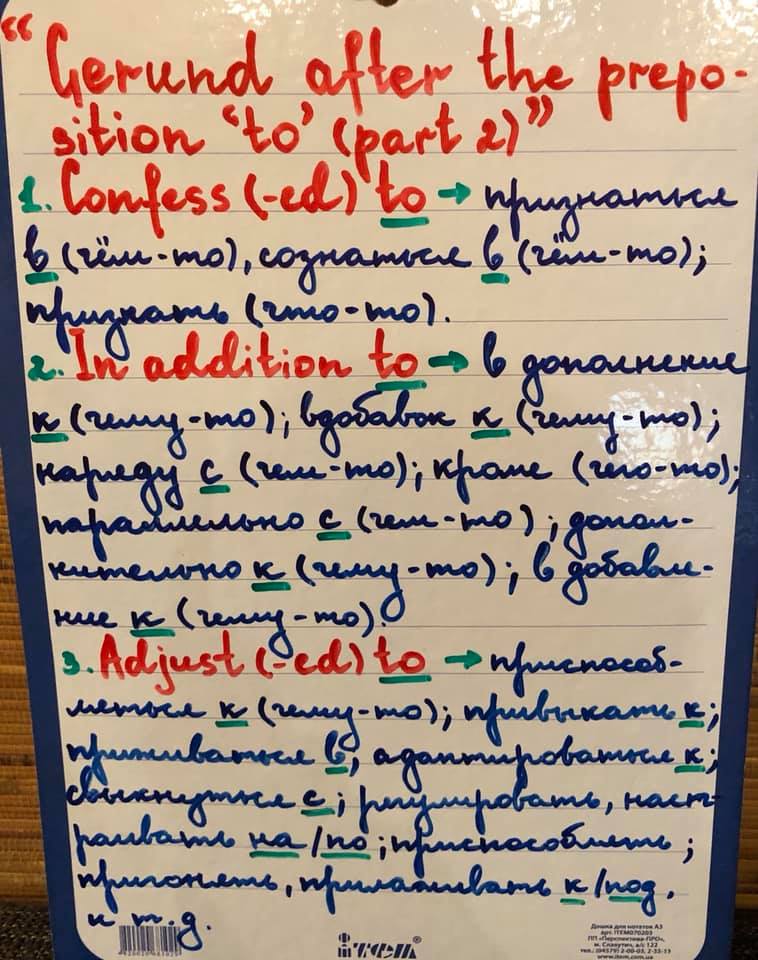 “Gerund after the prepo-
sition ‘to’ (part 2)”
1. Confess (-ed) to → признаться
в (чём-то), сознаться в (чём-то);
признать (что-то).
2. In addition to → в дополнение
к (чему-то); вдобавок к (чему-то);
наряду с (чем-то); кроме (чего-то);
параллельно с (чем-то); допол-
нительно к (чему-то); в добавле-
ние к (чему-то).
3. Adjust (-ed) to → приспособ-
ляться к (чему-то); привыкать к;
приживаться в, адаптироваться к;
свыкнуться с; регулировать, наст-
раивать на/по; приспособлять;
пригонять, прилаживать к/под,
и т.д.
item®
Дошка для нотаток А3
арт. ITEM070203
ПП «Перспектива-ПРО»,
м. Славутич, а/с 122
тел.: (04579) 2-00-03, 2-55-13
www.item.com.ua